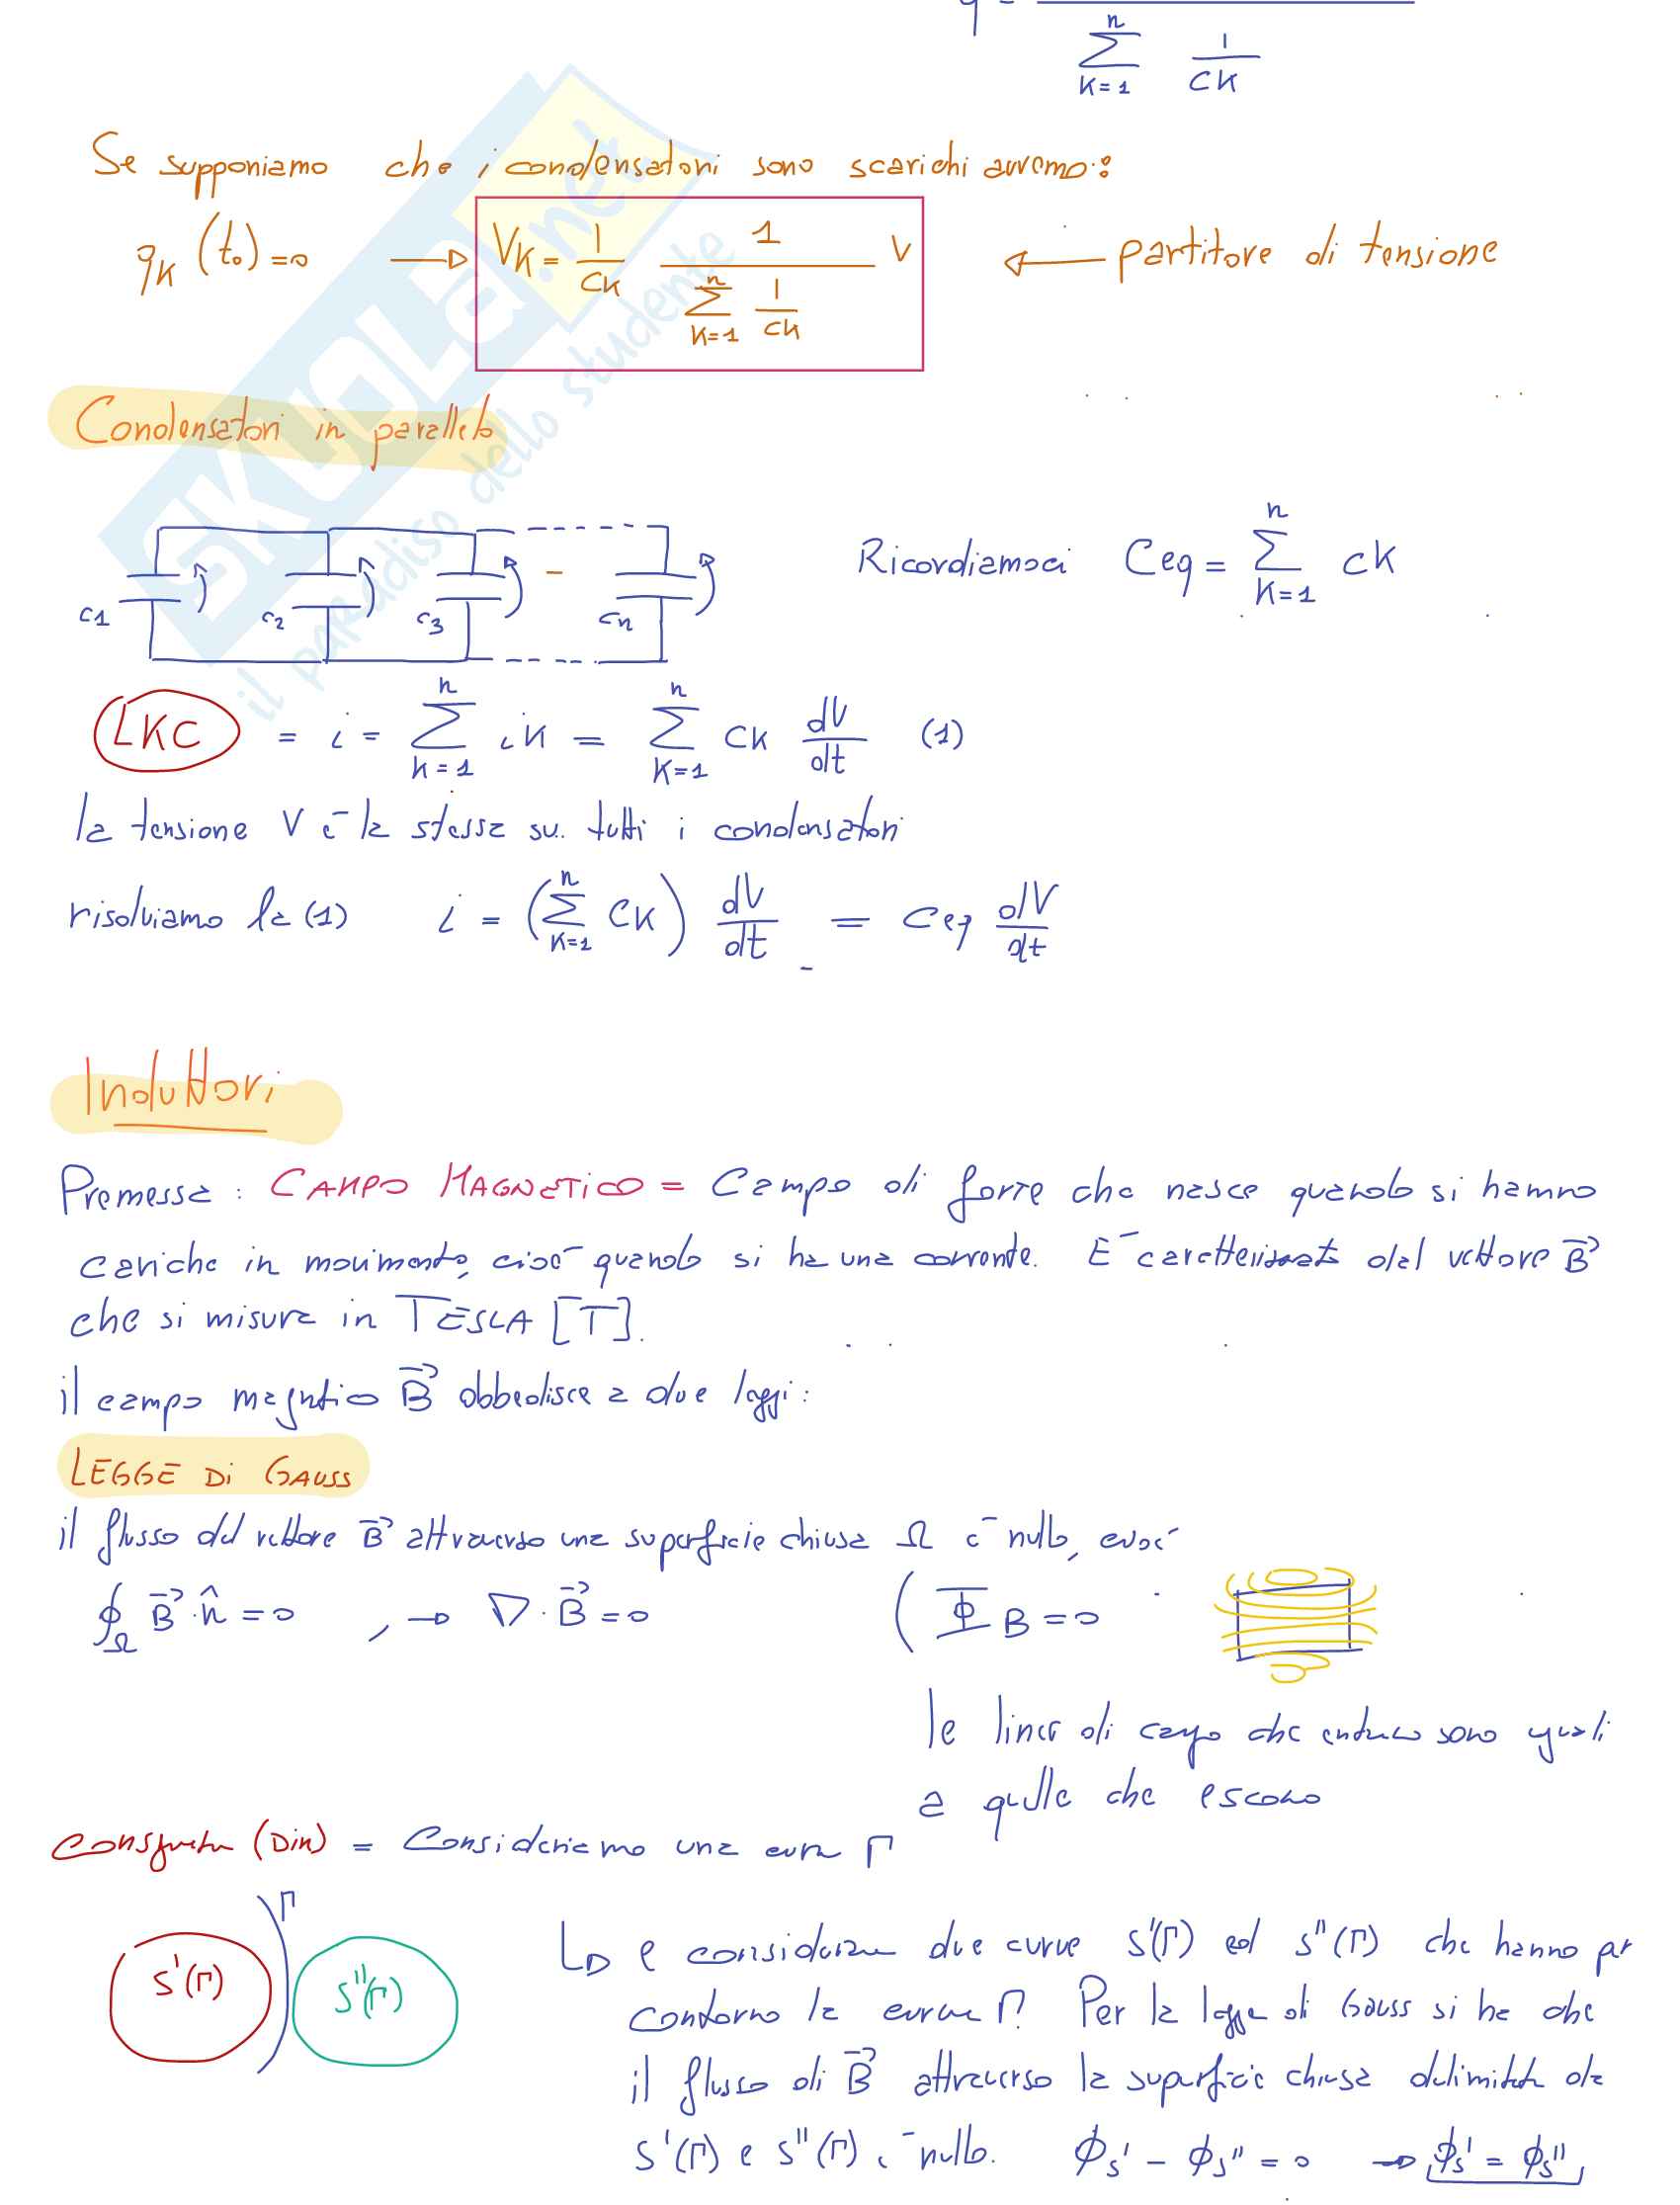 q = ─────
Σ_{K=1}^{n} 1/CK
Se supponiamo che i condensatori sono scarichi avremo:
qK (t₀)=0 → VK = 1/CK · 1/(Σ_{K=1}^{n} 1/CK) V ← partitore di tensione
Condensatori in parallelo
Ricordiamoci Ceq = Σ_{K=1}^{n} CK
C1 C2 C3 Cn
LKC = i = Σ_{K=1}^{n} iK = Σ_{K=1}^{n} CK dV/dt (1)
la tensione V è la stessa su tutti i condensatori
risolviamo la (1) i = (Σ_{K=1}^{n} CK) dV/dt = Ceq dV/dt
Induttori
Premessa : CAMPO MAGNETICO = Campo di forze che nasce quando si hanno
cariche in movimento, cioè quando si ha una corrente. È caratterizzato dal vettore B⃗
che si misura in TESLA [T].
il campo magntico B⃗ obbedisce a due leggi:
LEGGE Di GAUSS
il flusso del vettore B⃗ attraverso una superficie chiusa Ω è nullo, cioè
∮_Ω B⃗·n̂ =0 , → ∇·B⃗ =0 ( Φ B =0
le linee di campo che entrano sono uguali
a quelle che escono
(Dim) = Consideriamo una curva Γ
Γ
S'(Γ) S''(Γ)
↳ e consideriamo due curve S'(Γ) ed S''(Γ) che hanno per
contorno la curva Γ. Per la legge di Gauss si ha che
il flusso di B⃗ attraverso la superficie chiusa delimitata da
S'(Γ) e S''(Γ) è nullo. ϕS' − ϕS'' = 0 → ϕS' = ϕS''
SKUOLA.net
il paradiso dello studente